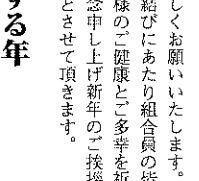 しくお願いいたします。
結びにあたり組合員の皆
様のご健康とご多幸を祈
念申し上げ新年のご挨拶
とさせて頂きます。
する年